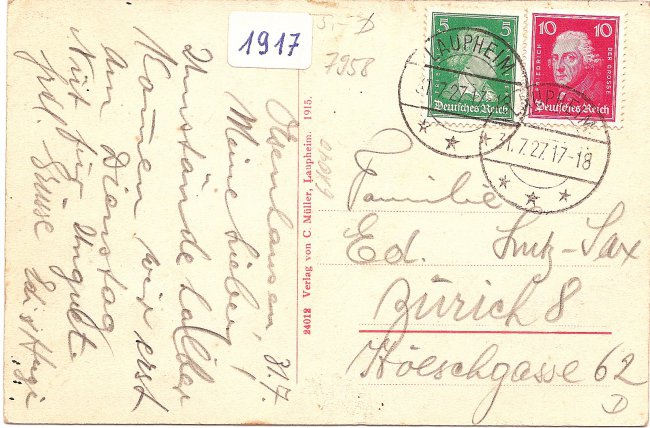 1917
7958
Ofsenhausen, 31.7.
Meine Lieben!
Umstände halber
können wir erst
am Dienstag
Nüt für Unguet.
Grüsse
24012 Verlag von C. Müller, Laupheim. 1915.
5 5
Deutsches Reich
10 10
FRIEDRICH DER GROSSE
Deutsches Reich
LAUPHEIM
31.7.27.17-18
LAUPHEIM
31.7.27.17-18
Familie
Ed. Lutz-Sax
Zürich 8
Höschgasse 62
D